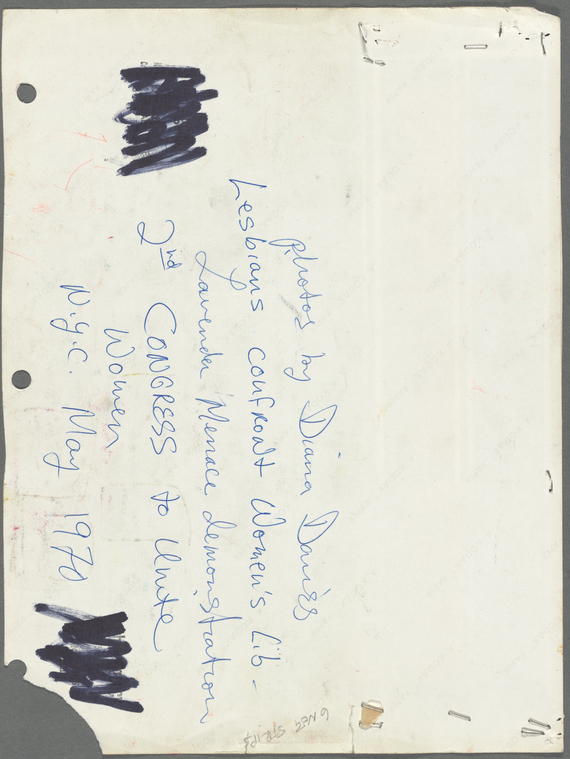 Photos by Diana Davies
Lesbians confront Women's Lib -
Lavender Menace demonstration
2nd CONGRESS to Unite
Women
N.Y.C. May 1970
6 NEG STRIPS